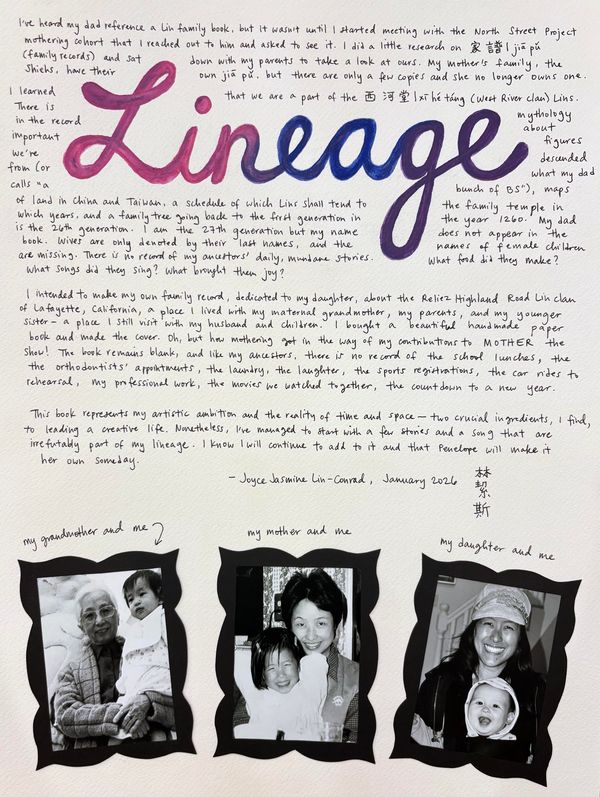 I've heard my dad reference a Lin family book, but it wasn't until I started meeting with the North Street Project
mothering cohort that I reached out to him and asked to see it. I did a little research on 家譜 | jiā pǔ
(family records) and sat down with my parents to take a look at ours. My mother's family, the
Shiehs, have their own jiā pǔ, but there are only a few copies and she no longer owns one.
Lineage
I learned that we are a part of the 西河堂 | xī hé táng (West River clan) Lins.
There is mythology
in the record about
important figures
we're descended
from (or what my dad
calls "a bunch of BS"), maps
of land in China and Taiwan, a schedule of which Lins shall tend to the family temple in
which years, and a family tree going back to the first generation in the year 1260. My dad
is the 26th generation. I am the 27th generation but my name does not appear in the
book. Wives are only denoted by their last names, and the names of female children
are missing. There is no record of my ancestors' daily, mundane stories. What food did they make?
What songs did they sing? What brought them joy?
I intended to make my own family record, dedicated to my daughter, about the Reliez Highland Road Lin clan
of Lafayette, California, a place I lived with my maternal grandmother, my parents, and my younger
sister – a place I still visit with my husband and children. I bought a beautiful handmade paper
book and made the cover. Oh, but how mothering got in the way of my contributions to MOTHER the
show! The book remains blank, and like my ancestors, there is no record of the school lunches, the
the orthodontists' appointments, the laundry, the laughter, the sports registrations, the car rides to
rehearsal, my professional work, the movies we watched together, the countdown to a new year.
This book represents my artistic ambition and the reality of time and space – two crucial ingredients, I find,
to leading a creative life. Nonetheless, I've managed to start with a few stories and a song that are
irrefutably part of my lineage. I know I will continue to add to it and that Penelope will make it
her own someday.
– Joyce Jasmine Lin-Conrad, January 2026
林絜斯
my grandmother and me
my mother and me
my daughter and me